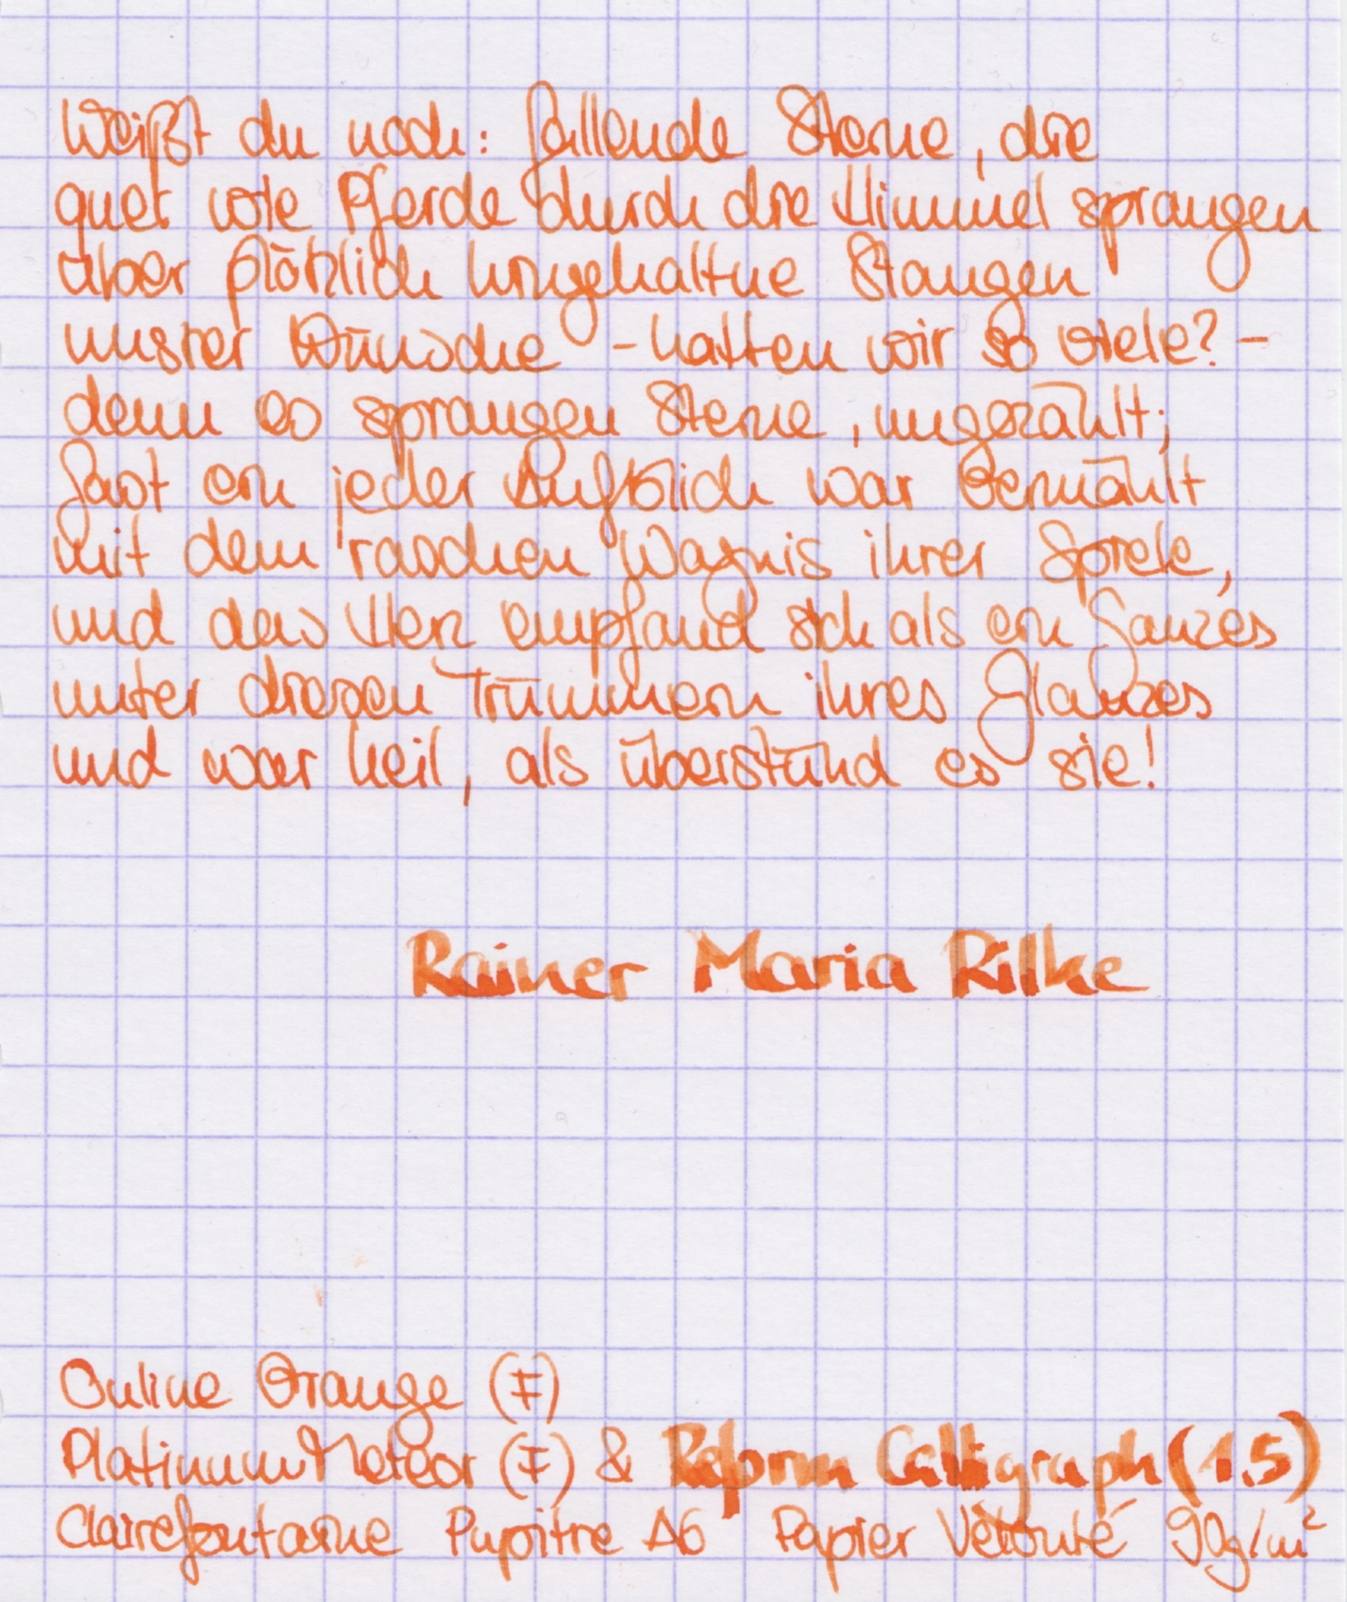 Weißt du noch: fallende Sterne, die
quer wie Pferde durch die Himmel sprangen
über plötzlich hingehaltne Stangen
unsrer Wünsche - hatten wir so viele? -
denn es sprangen Sterne, ungezählt;
fast ein jeder Aufblick war vermählt
mit dem raschen Wagnis ihrer Spiele,
und das Herz empfand sich als ein Ganzes
unter diesen Trümmern ihres Glanzes
und war heil, als überstünd es sie!
Rainer Maria Rilke
Online Orange (F)
Platinum Meteor (F) & Reform Calligraph (1.5)
Clairefontaine Pupitre A6 Papier Velouté 90g/m²